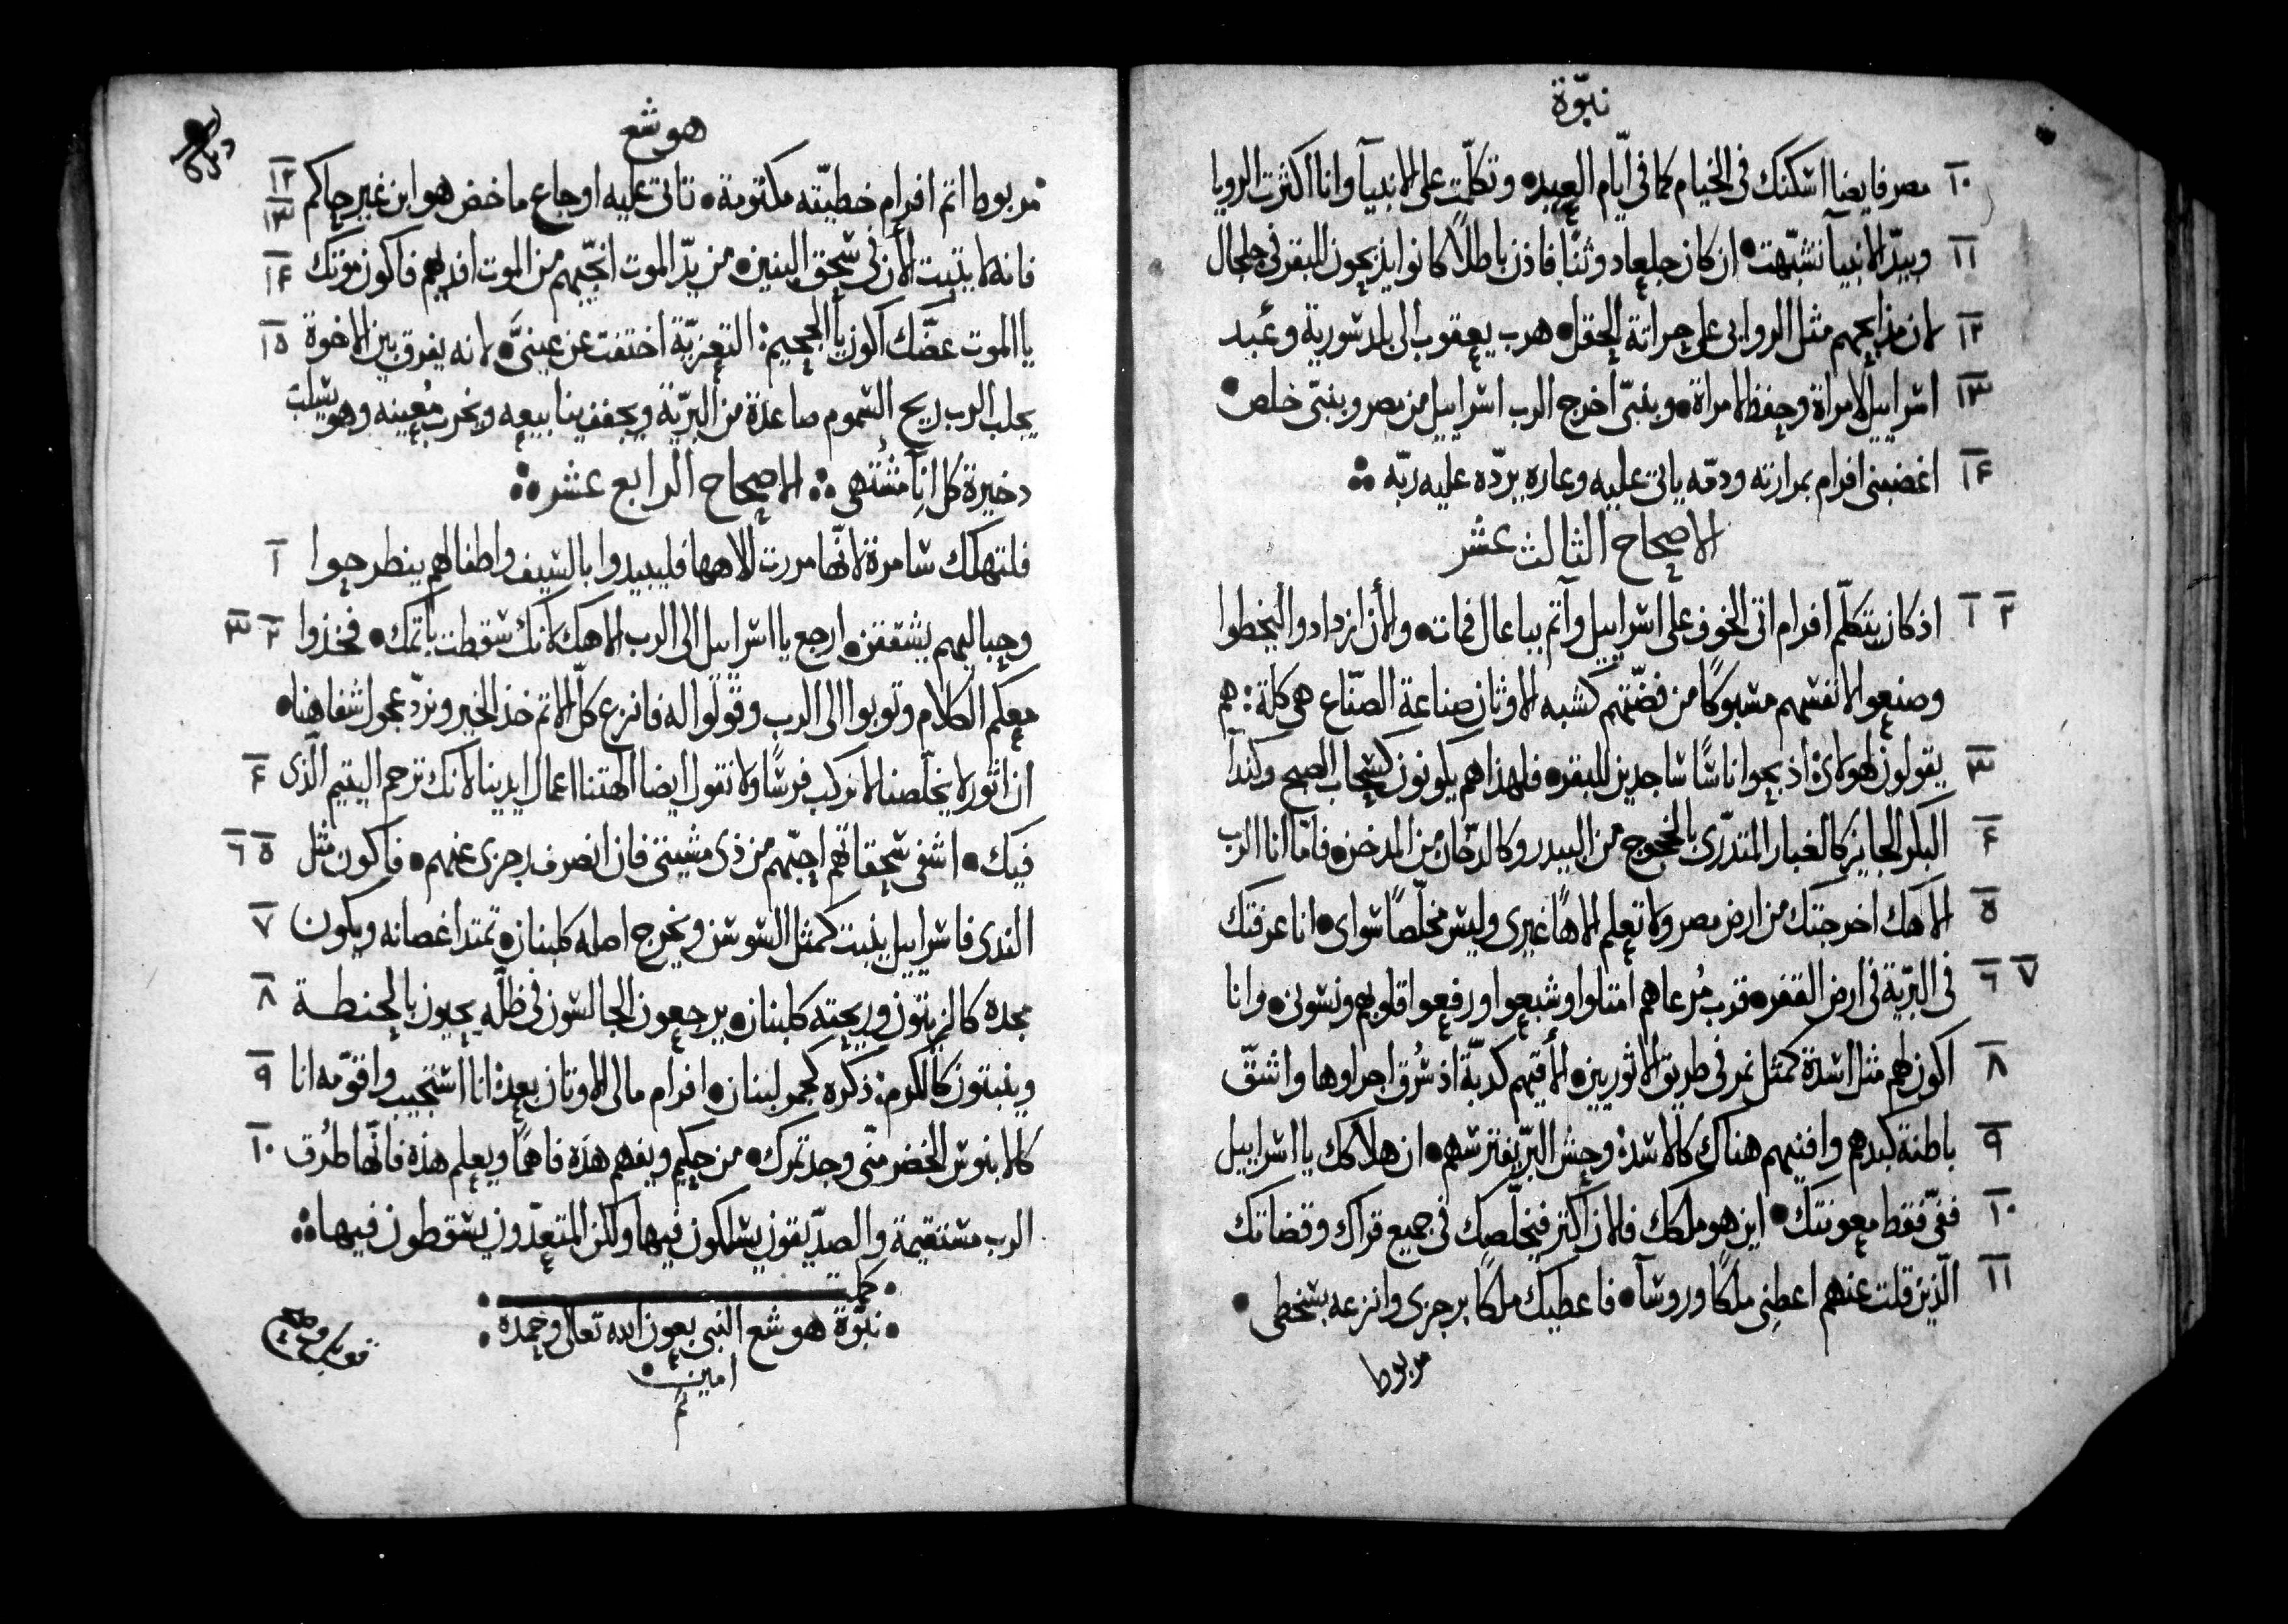 نبوّة
١٠ مصر فايضا اسكنك فى الخيام كما فى ايّام العيد • وتكلّمت على الانبيآ وانا اكثرت الرويا
١١ وبيد الانبيآ تشبّهت • ان كان جلعاد وثنًا فاذن باطلًا كانوا يذبحون للبقر فى جلجال
١٢ لان مذابحهم مثل الروابى على حراتة الحقل • هرب يعقوب الى بلد سورية وعبد
١٣ اسراييل لامراة وحفظ لامراة • وبنبىّ اخرج الرب اسراييل من مصر وبنبىّ خلص •
١٤ اغضبنى افرام بمرارته ودمّه ياتى عليه وعاره يردّه عليه ربّه
الاصحاح الثالث عشر
١ ٢ اذ كان يتكلّم افرام اتى الخوف على اسراييل وآثم بباعال فمات • والأن ازدادوا ليخطوا
وصنعوا لانفسهم مسبوكًا من فضّتهم كشبه الاوثان صناعة الصنّاع هى كلة : هم
٣ يقولون لهولاى اذبحوا اناسًا ساجدين للبقر • فلهذا هم يكونون كسحاب الصبح وكندآ
٤ البكر الجايز كالغبار المتدرّى بالخجوج من البيدر وكالدخّان من المدخن • فامّا انا الرب
٥ الاهك اخرجتك من ارض مصر ولا تعلم الاهًا غيرى وليس مخلّصًا سواى • انا عرفتك
٦ ٧ فى البرّية فى ارض القفر • قرب مُرعاهم امتلوا وشبعوا ورفعوا قلوبهم ونسونى • وانا
٨ اكون لهم مثل اسدة كمثل نمر فى طريق الاثوريين • الأقيهم كدبّة اذ سُرق اجراوها واشقّ
٩ باطنة كبدهم وافنيهم هناك كالاسد وحش البرّ يفترسهم • ان هلاكك يا اسراييل
١٠ ففىّ فقط معونتك • اين هو ملكك فالان اكثر فيخلّصك فى جميع قراك وقضاتك
١١ الّذين قلت عنهم اعطنى ملكًا وروسآ • فاعطيك ملكًا برجزى وانزعه بسخطى •
مربوط
هوشع
١٢ ١٣ مربوط اثم افرام خطيّته مكتومة • تاتى عليه اوجاع ماخض هو ابن غير حاكم
١٤ فانه لا يثبت الأن فى سحق البنين • من يدّ الموت انجّيهم من الموت افديهم فاكون موتك
١٥ يا الموت عضّك اكون يا الجحيم : التعزيّة اختفت عن عينىَّ • لانه يفرق بين الاخوة
يجلب الرب ريح السموم صاعدة من البرّية ويجفف ينابيعه ويخرب مُعينه وهو يسلب
دخيرة كل انآ مشتهى الاصحاح الرابع عشر
١ فلتهلك سامرة لانّها مررت لالاهها فليبيدوا بالسيف واطفالهم ينطرحوا
٢ ٣ وحباليهم يشققن • ارجع يا اسراييل الى الرب الاهك لانك سقطت باثمك • فخذوا
معكم الكلام وتوبوا الى الرب وقولوا له فانزع كلّ الاثم خذ الخير ونردّ عجول شفاهنا •
٤ ان اثور لا يخلّصنا لا نركب فرسًا ولا نقول ايضا الهتنا اعمال ايدينا لانك ترحم اليتيم الّذى
٥ ٦ فيك • اشفى سحقاتهم احبّهم من ذى مشيتى فان انصرف رجزى عنهم • فاكون مثل
٧ الندى فاسراييل ينبت كمثل السوسن ويخرج اصله كلبنان • تمتد اغصانه ويكون
٨ مجده كالزيتون وريحته كلبنان • يرجعون الجالسون فى ظلّه يحيون بالحنطة
٩ وينبتون كالكرم : ذكره كخمر لبنان • افرام مالى الاوثان بعد انا استجيب واقوّمه انا
١٠ كالابنوس الخضر منّى وجد ثمرك • من حكيم ويفهم هذه فاهمًا ويعلم هذه فانّها طُرق
الرب مستقيمة والصدّيقون يسلكون فيها ولكن المتعدّون يسقطون فيها
كملت
نبوّة هوشع النبى بعون الله تعالى وحمده
امين
تم